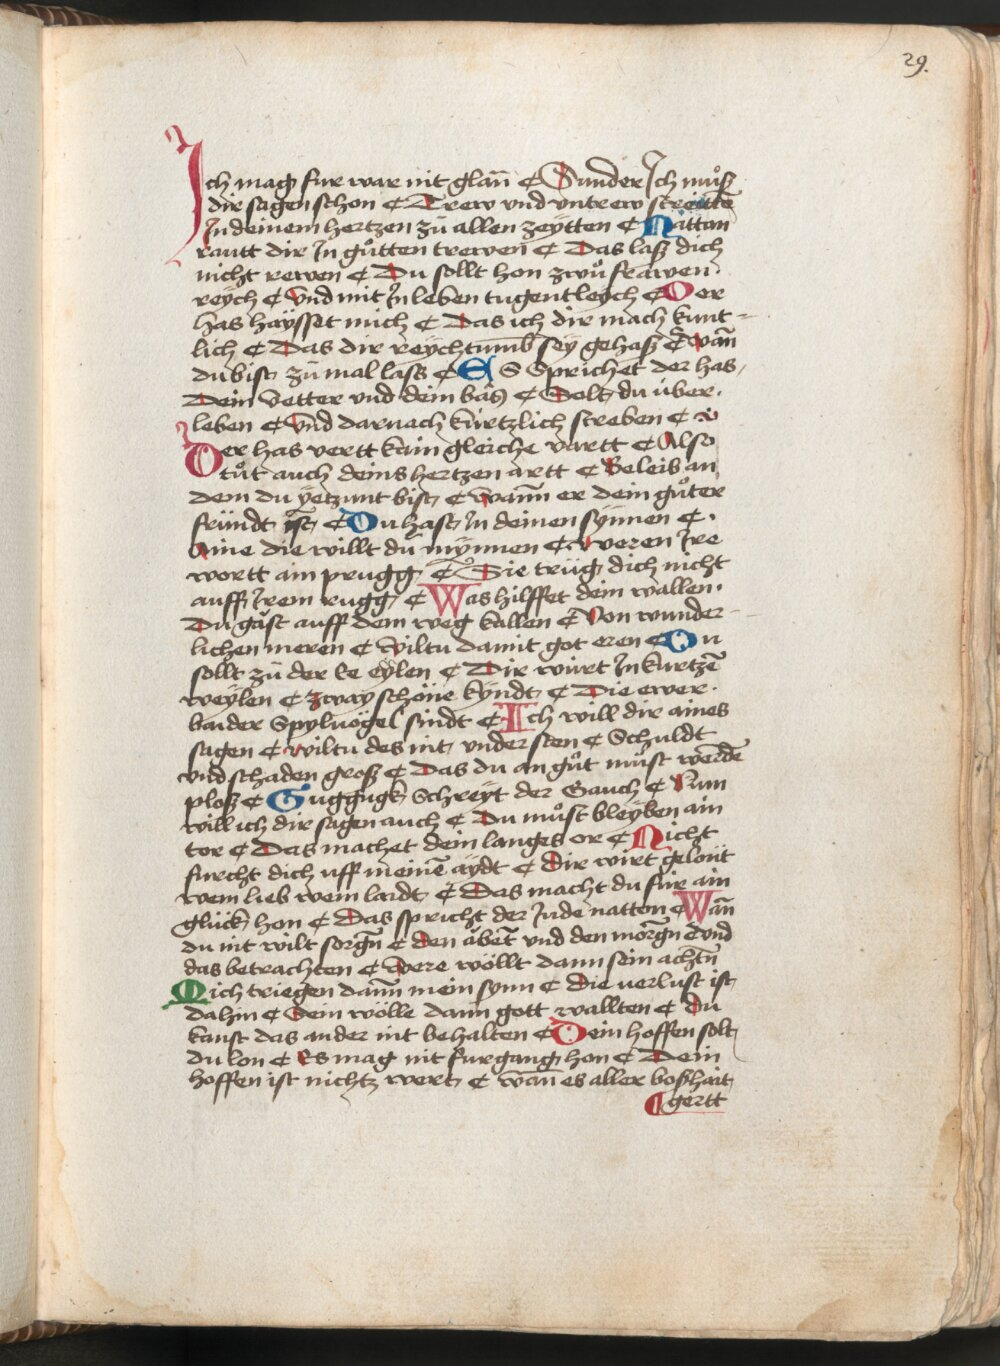 29.
Ich mag fur war nit glan̄ ¢ Sunder Ich můsz
dir sagen schon ¢ Trew vnd vntrew streittē
In deinem hertzen zů allen zeytten ¢ Natton
rautt dir In gůtten trewen ¢ Das lasz dich
nicht rewen ¢ Du sollt hon zwů frawen
reych ¢ Vnd mit In leben tugentleych ¢ Der
has haysset mich ¢ Das ich dir mach kunt-
lich ¢ Das dir reychtumb sey gehasz ¢ Wan̄
du bist zů mal lass ¢ ES Sprichet der has
Dein Vetter vnd dein bas ¢ Solt du über
leben ¢ Vnd darnach kürtzlich sterben ¢
Der has vertt kain gleiche vartt ¢ Also
tůt auch deins hertzen artt ¢ Beleib an
dem du yetzunt bist ¢ Wann er dein gůter
fründt ist ¢ Du hast In deinen synnen ¢
Aine die willt du mynnen ¢ Weren Ire
wortt ain prugg ¢ Sie trüg dich nicht
auff Irem rugg ¢ Was hilffet dein wallen
Du gast auff dem weg kallen ¢ Von wunder
lichen meren ¢ Wiltu damit got eren ¢ Du
sollt zů der ke eylen ¢ Dir würt In kurtzē
weylen ¢ zway schöne kyndt ¢ Die ewer
baider Spyluögel sindt ¢ Ich will dir aines
sagen ¢ Wiltu des nit vndersten ¢ Schuldt
vnd schaden grosz ¢ Das du an gůt můst werdē
plosz ¢ Guggugk Schreyt der Gauch ¢ Nun
will ich dir sagen auch ¢ Du můst bleyben ain
tor ¢ Das machet dein langes or ¢ Nicht
furcht dich uff meinē aydt ¢ Dir wirt gelönt
wem lieb wem laidt ¢ Das macht du für ain
glück hon ¢ Das spricht der Jude natton ¢ Wan̄
du nit wilt sorgn̄ ¢ den abēt vnd den morgn̄ ¢ Vnd
das betrachten ¢ Were wöllt dann sein achtn̄
Mich triegen dann mein synn ¢ die verlust ist
dahin ¢ Dein wölle dann gott wallten ¢ Du
kanst das ander nit behalten ¢ Dein hoffen solt
du lon ¢ Es mag nit furgang hon ¢ Dein
hoffen ist nichtz wert ¢ Wan̄ es aller boszhait
¢ gertt